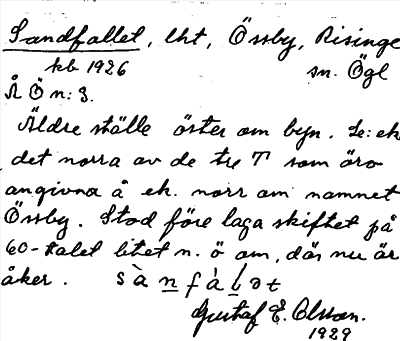 Sandfallet, lht, Össby, Risinge
kb 1926 sn. Ögl
Å Ö n: 3.
Äldre ställe öster om byn. Se: ek
det norra av de tre T som äro
angivna å ek. norr om namnet
Össby. Stod före laga skiftet på
60-talet litet n. ö om, där nu är
åker. sànfàlət
Gustaf E. Olsson.
1929